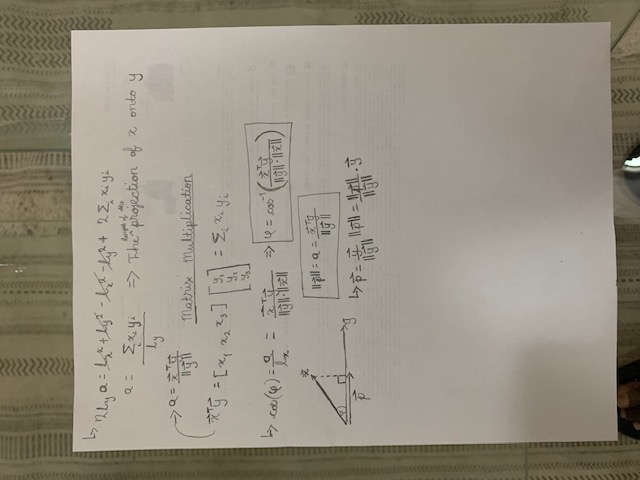 ↳ 2l_y a = l_x² + l_y² - l_x² - l_y² + 2 Σ_i x_i y_i
a = Σ_i x_i y_i / l_y => The length of the projection of x onto y
→ a = x⃗ᵀy⃗ / ‖y⃗‖
Matrix Multiplication
x⃗ᵀy⃗ = [x₁ x₂ x₃] [y₁ y₂ y₃] = Σ_i x_i y_i
↳ cos(φ) = a / l_x = x⃗ᵀy⃗ / ‖y⃗‖·‖x⃗‖ => φ = cos⁻¹(x⃗ᵀy⃗ / ‖y⃗‖·‖x⃗‖)
x⃗
‖p⃗‖ = a = x⃗ᵀy⃗ / ‖y⃗‖
φ
y⃗
p⃗
↳ p⃗ = y⃗ / ‖y⃗‖ ‖p⃗‖ = ‖p⃗‖ / ‖y⃗‖ · y⃗